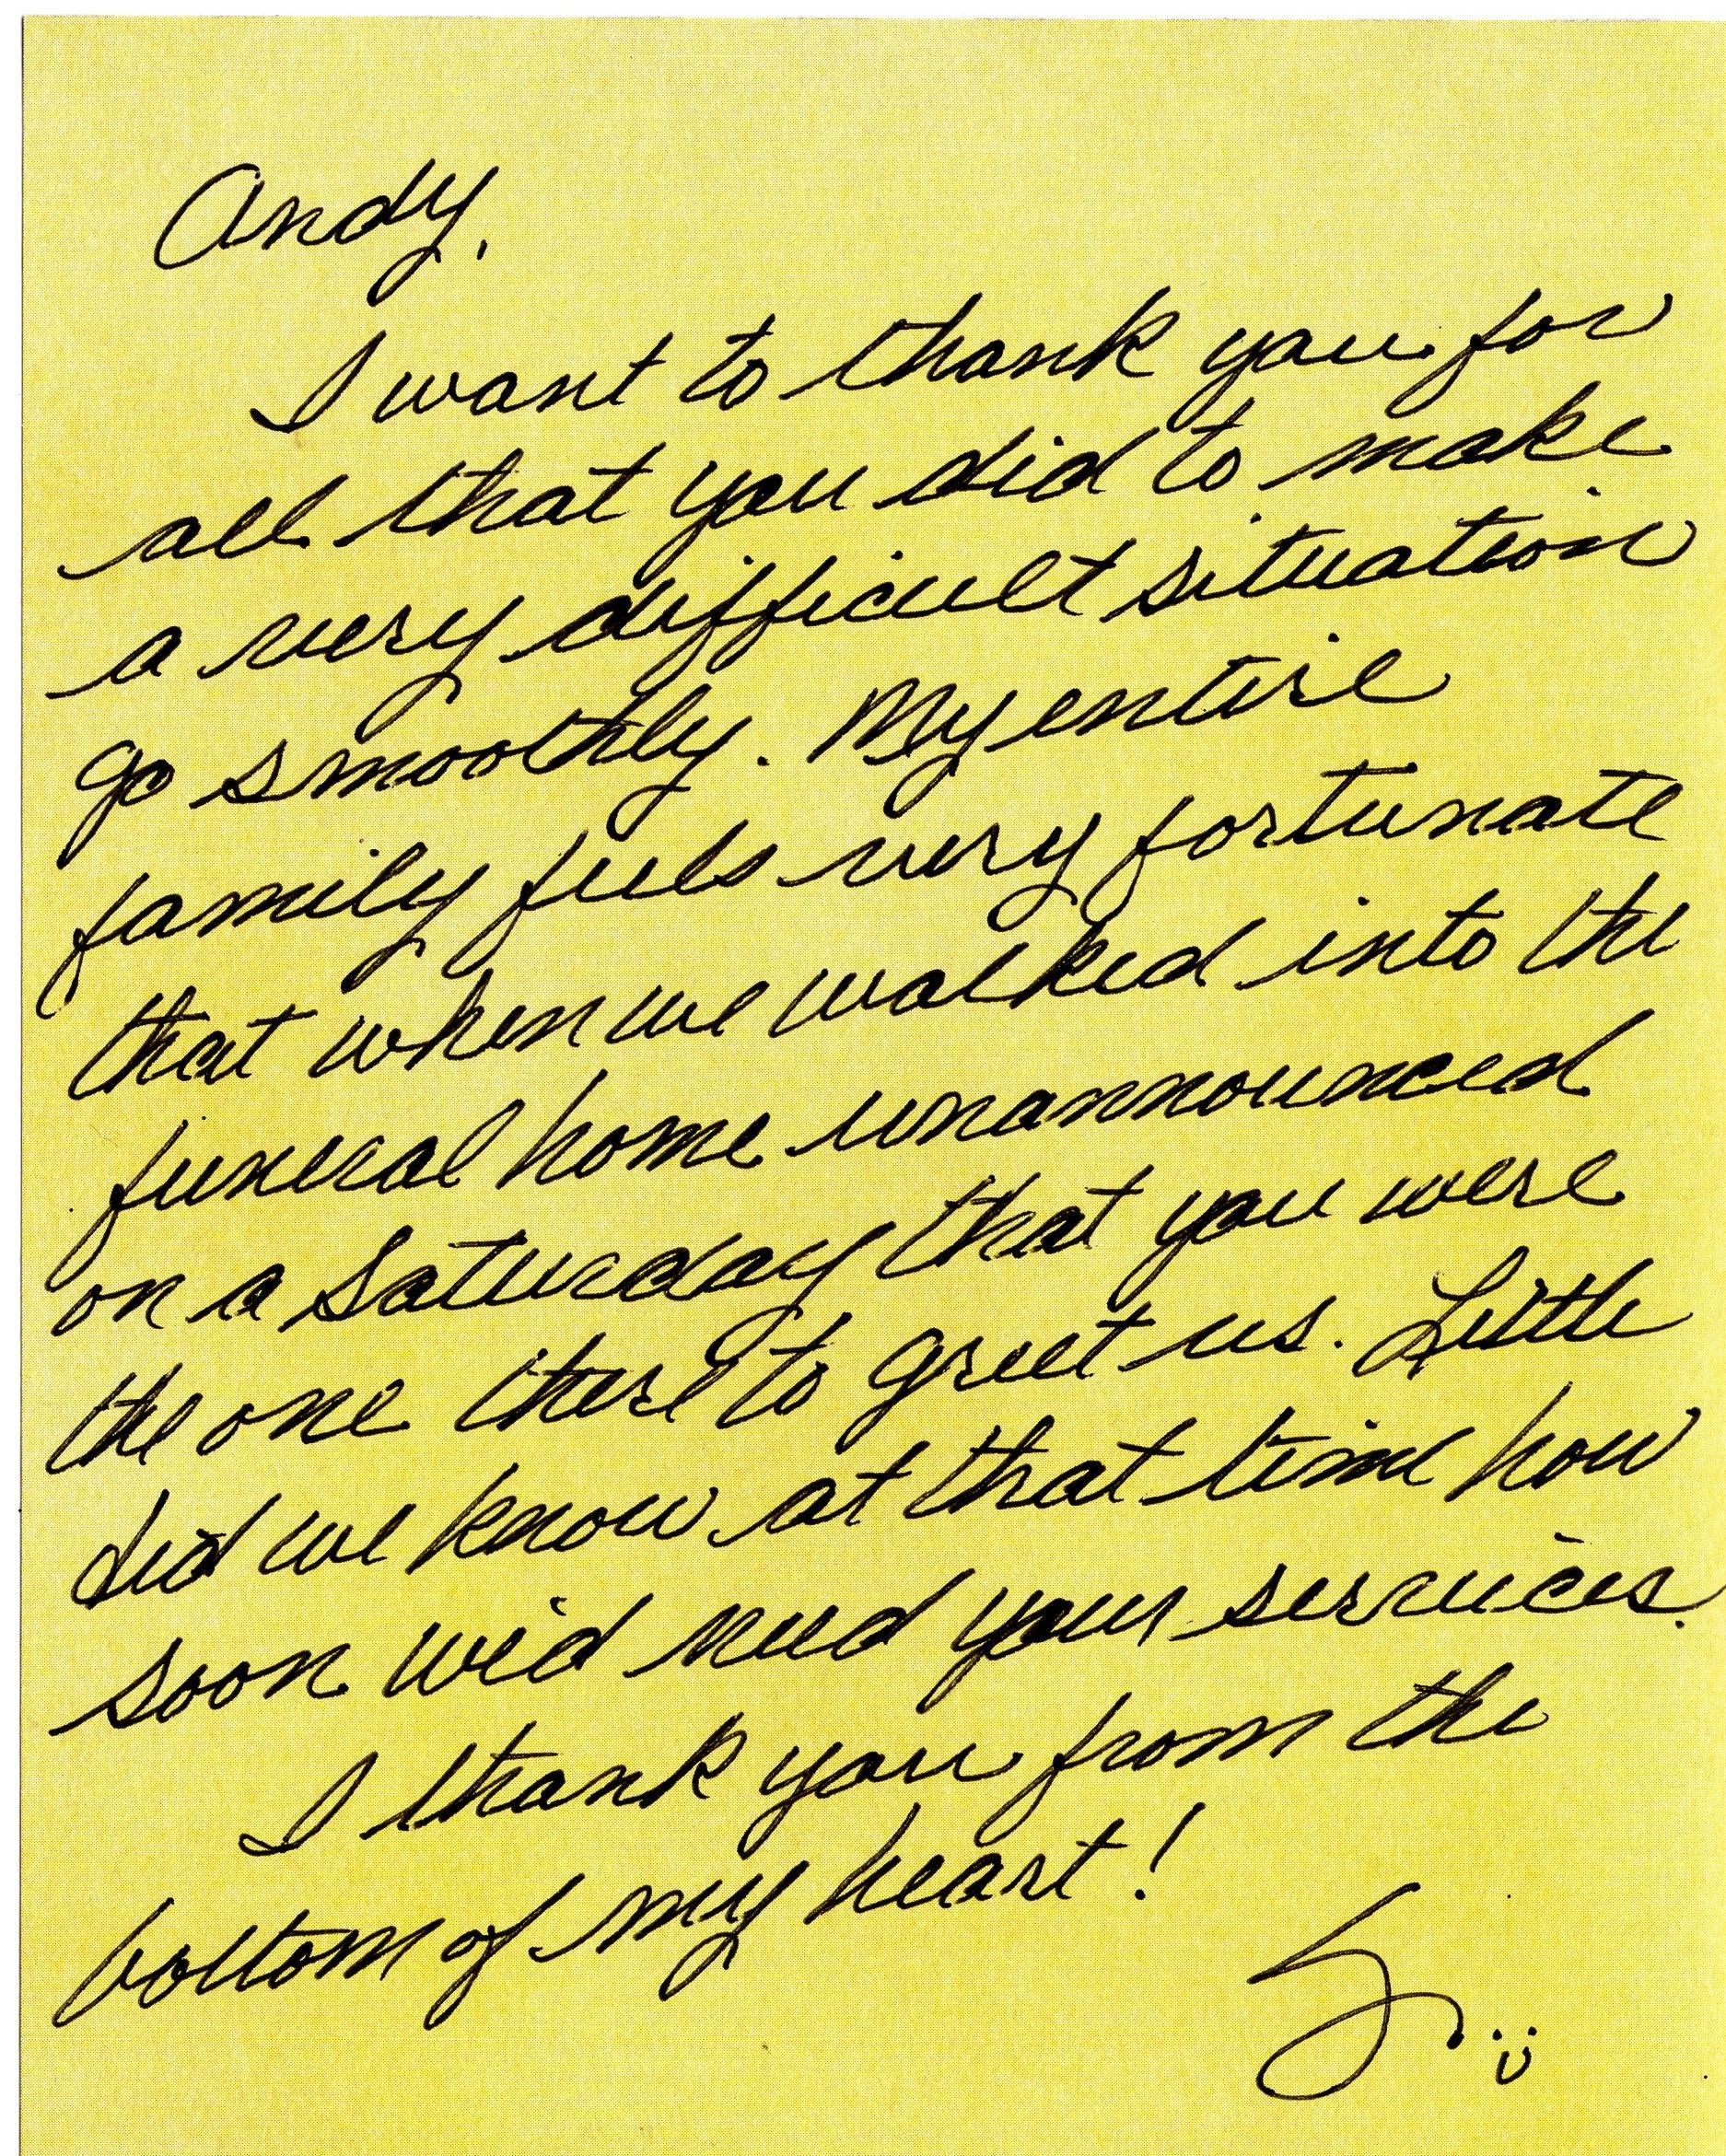 Andy,
I want to thank you for
all that you did to make
a very difficult situation
go smoothly. My entire
family feels very fortunate
that when we walked into the
funeral home unannounced
on a Saturday that you were
the one there to greet us. Little
did we know at that time how
soon we'd need your services.
I thank you from the
bottom of my heart!